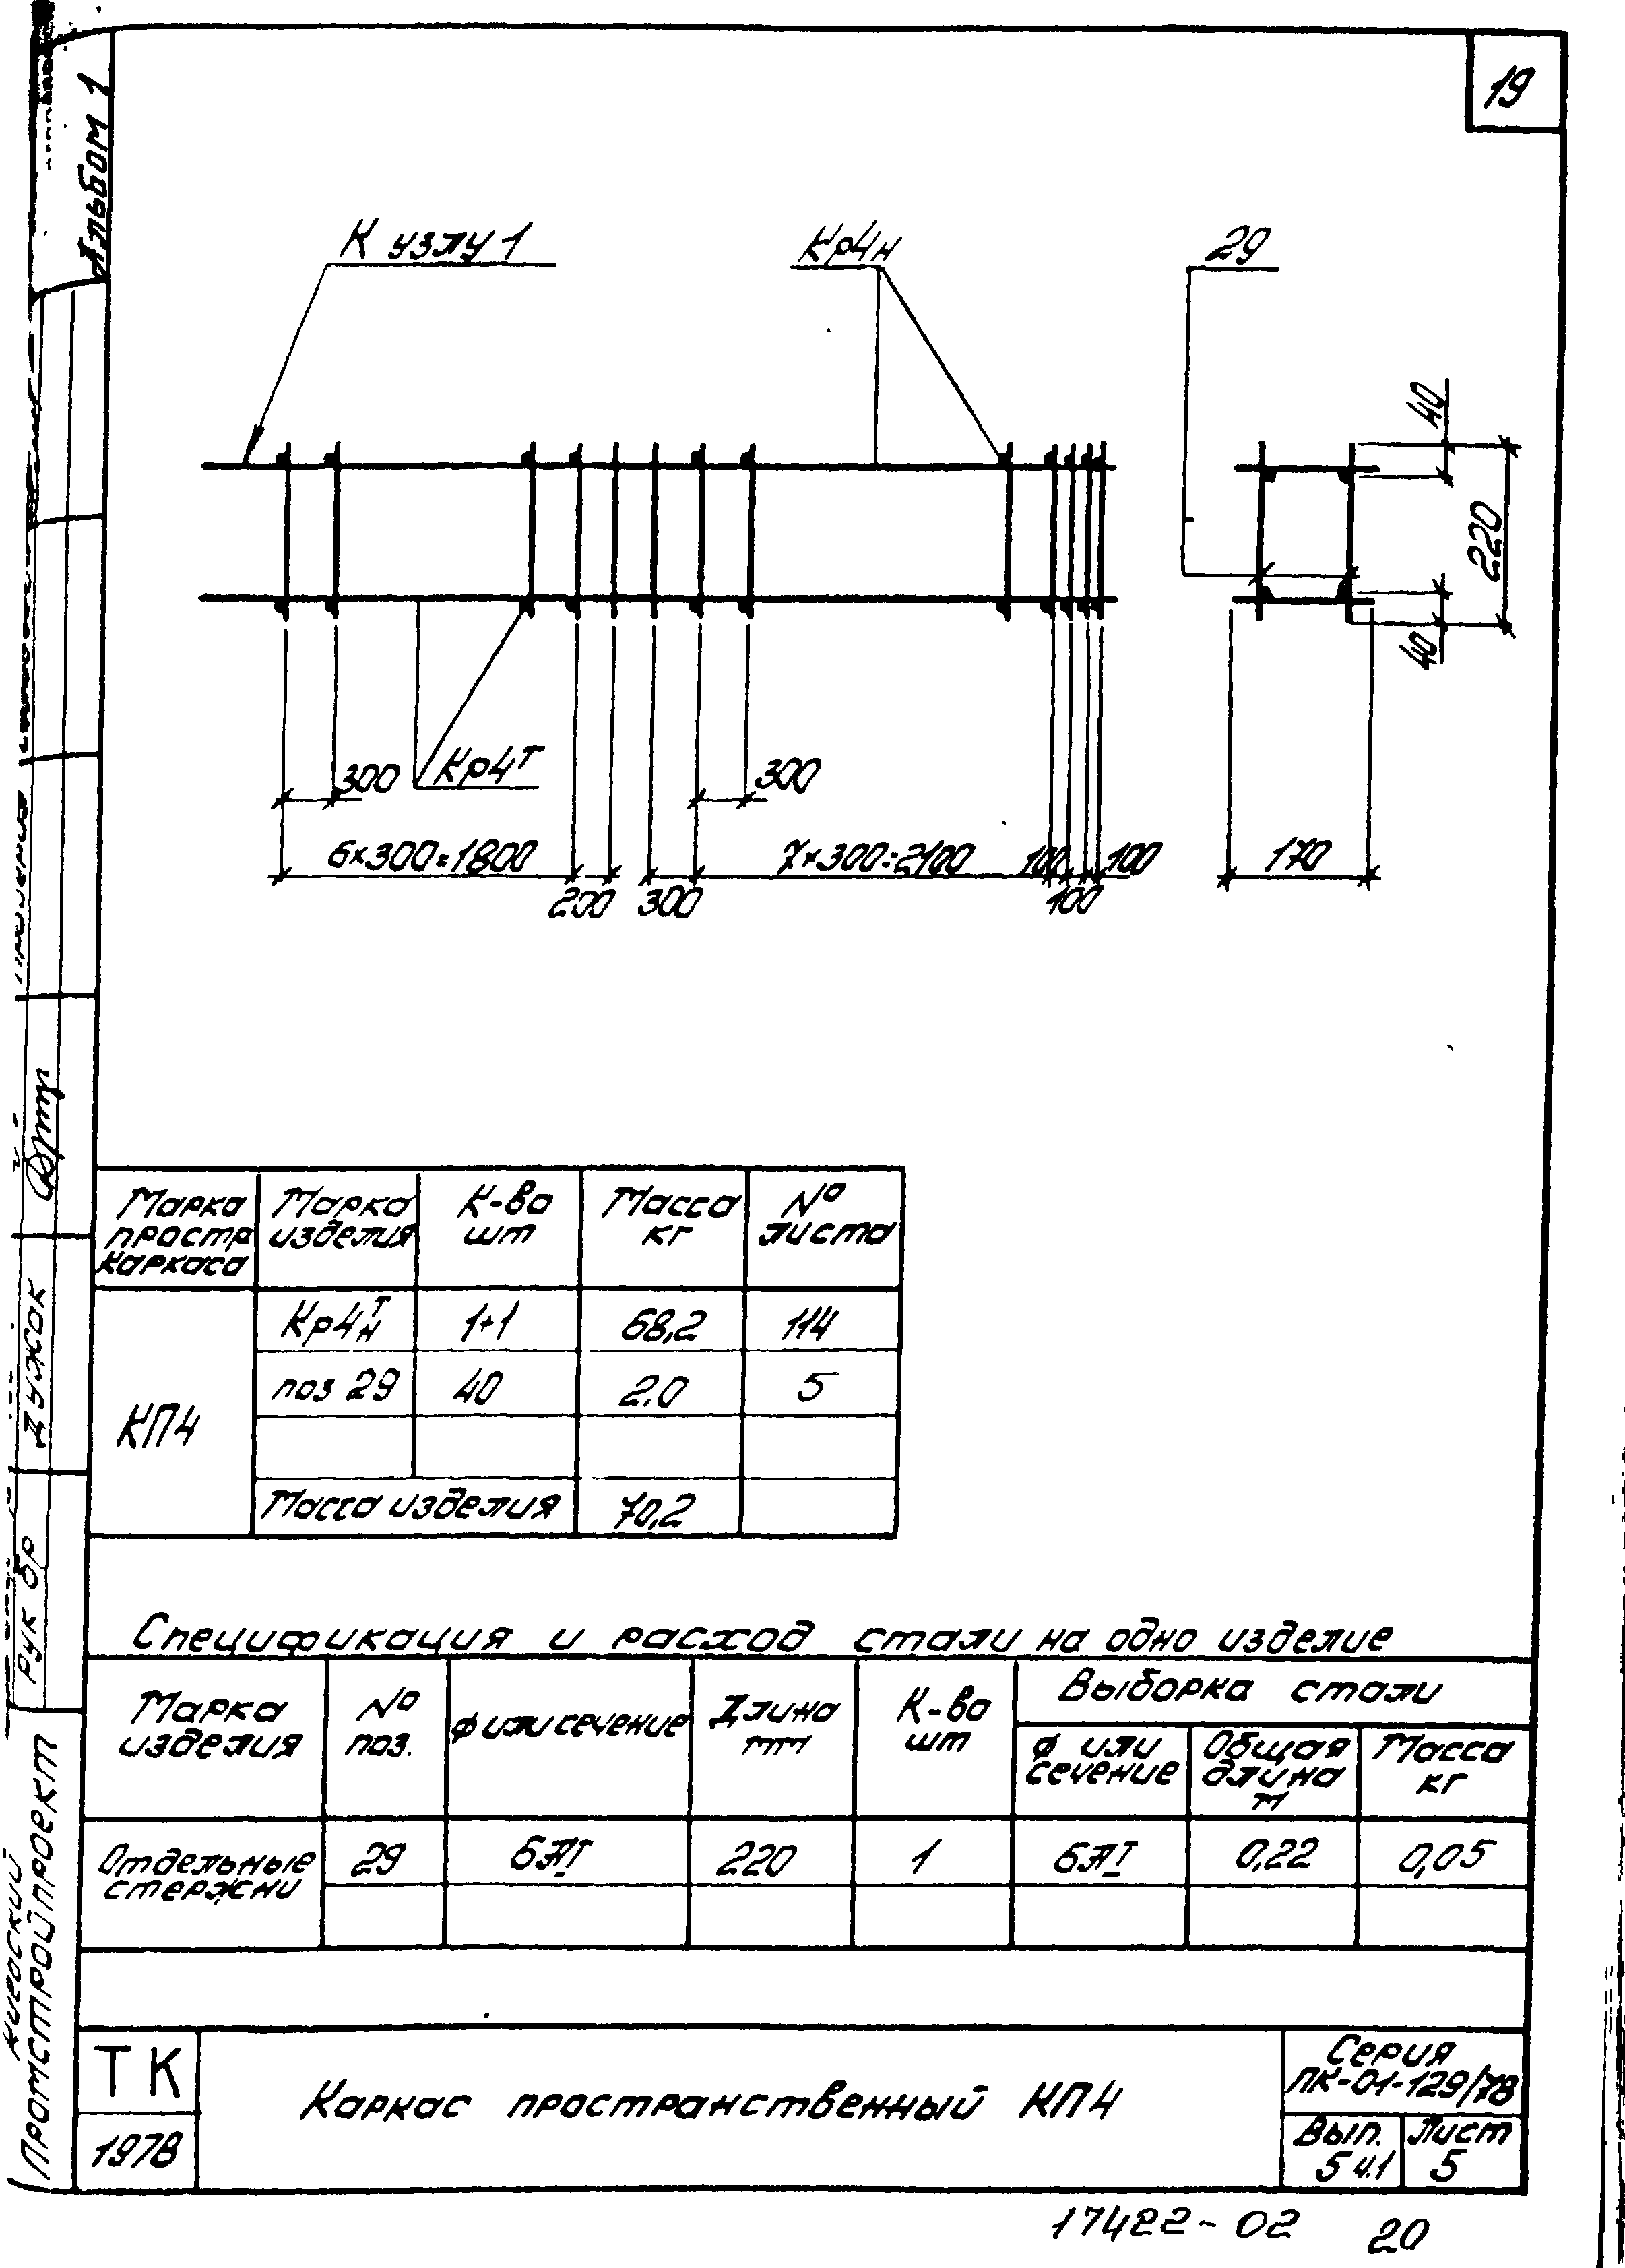 19
Альбом 1
К узлу 1
Кр4н
29
40
220
40
300
Кр4т
300
6×300=1800
7×300=2100
100
100
170
200
300
100
Марка простр каркаса
Марка изделия
К-во шт
Масса кг
№ листа
КП4
Кр4тн
1+1
68,2
114
поз 29
40
2,0
5
Масса изделия
70,2
Спецификация и расход стали на одно изделие
Марка изделия
№ поз.
ф или сечение
Длина мм
К-во шт
Выборка стали
ф или сечение
Общая длина м
Масса кг
Отдельные стержни
29
6АI
220
1
6АI
0,22
0,05
ТК
1978
Каркас пространственный КП4
Серия
ПК-01-129/78
Вып.
5 ч.1
Лист
5
17422-02
20
Рук бр
Дужок
Киевский
Промстройпроект